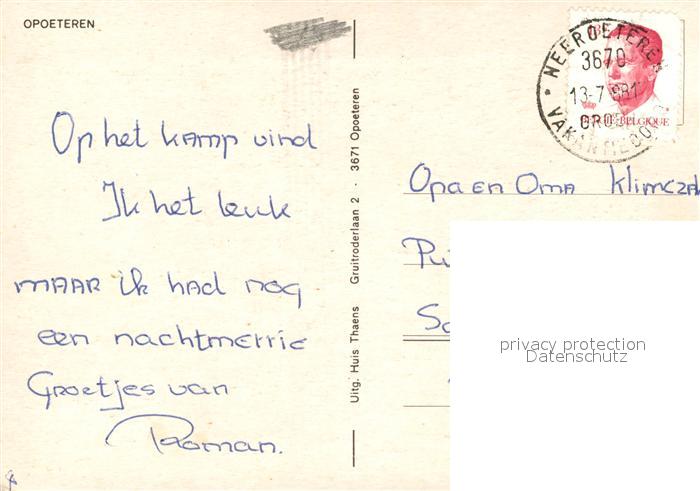 OPOETEREN
Op het kamp vind
Ik het leuk
MAAR ik had nog
een nachtmerrie
Groetjes van
Roman.
Uitg. Huis Thaens Gruitroderlaan 2 · 3671 Opoeteren
NEEROETEREN
3670
13-7
BELGIQUE
Opa en Oma Klimcza
privacy protection
Datenschutz